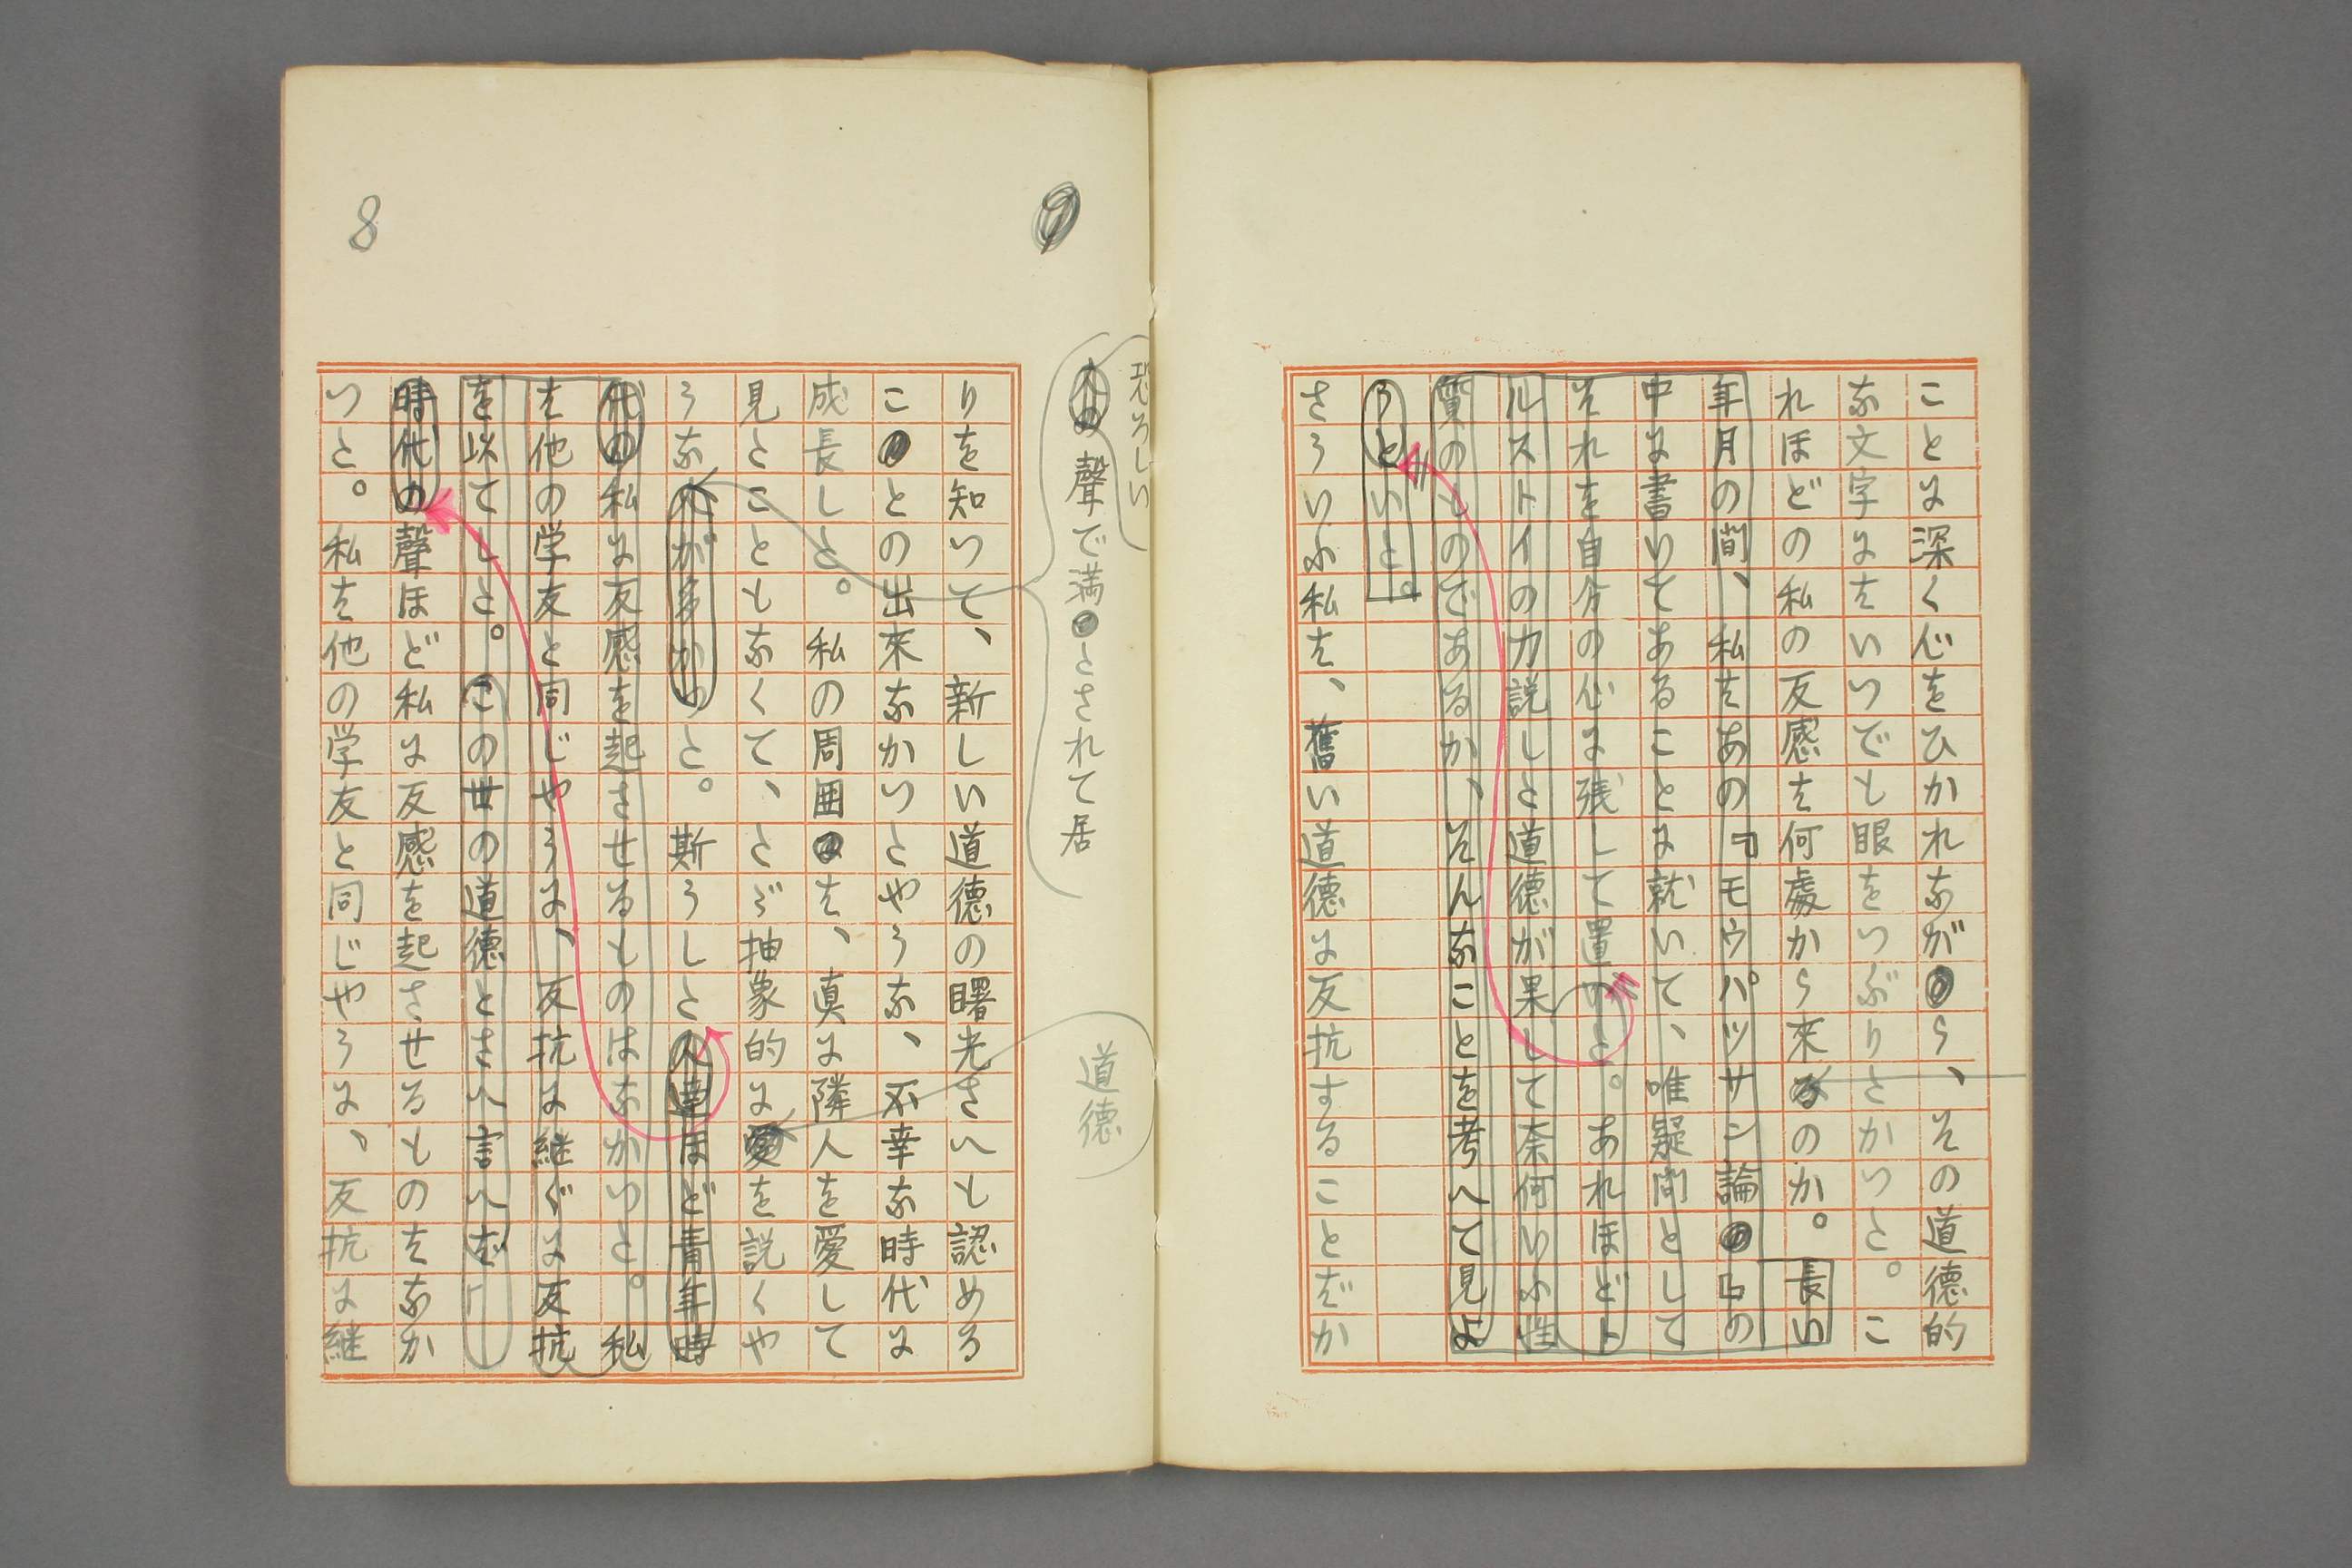 ことに深く心をひかれながら、その道德的
な文字にはいつでも眼をつぶりたかつた。こ
れほどの私の反感は何處から來るのか。長い
年月の間、私はあの『モウパツサン論』の
中に書いてあることに就いて、唯疑問として
それを自分の心に残して置いた。あれほどト
ルストイの力説した道徳が果して奈何いふ性
質のものであるか、そんなことを考へて見よ
うといた。
さういふ私は、舊い道徳に反抗することばか
恐ろしい
聲で満たされて居
道徳
りを知つて、新しい道徳の曙光さへも認める
ことの出來なかつたやうな、不幸な時代に
成長した。私の周囲には、真に隣人を愛して
見たこともなくて、たゞ抽象的に愛を説くや
うな人が多かつた。斯うした人達ほど青年時
代の私に反感を起させるものはなかつた。私
は他の学友と同じやうに、反抗に継ぐに反抗
を以てした。この世の道徳とさへ言へば
時代の聲ほど私に反感を起させるものはなか
つた。私は他の学友と同じやうに、反抗に継
8